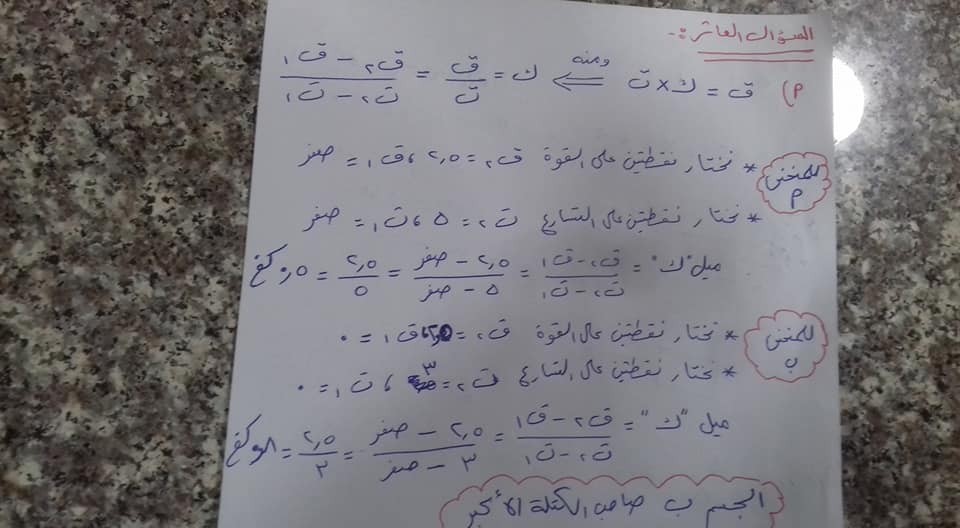 السؤال العاشر :-
أ) ق = ك × ت ومنه ⇐ ك = ق/ت = (ق٢ - ق١)/(ت٢ - ت١)
للمنحنى أ
* نختار نقطتين على القوة ق٢ = ٢,٥ ، ق١ = صفر
* نختار نقطتين على التسارع ت٢ = ٥ ، ت١ = صفر
ميل "ك" = (ق٢ - ق١)/(ت٢ - ت١) = (٢,٥ - صفر)/(٥ - صفر) = ٢,٥/٥ = ٥,٠ كغ
للمنحنى ب
* نختار نقطتين على القوة ق٢ = ٢,٥ ، ق١ = ٠
* نختار نقطتين على التسارع ت٢ = ٣ ، ت١ = ٠
ميل "ك" = (ق٢ - ق١)/(ت٢ - ت١) = (٢,٥ - صفر)/(٣ - صفر) = ٢,٥/٣ = كغ
الجسم ب صاحب الكتلة الأكبر